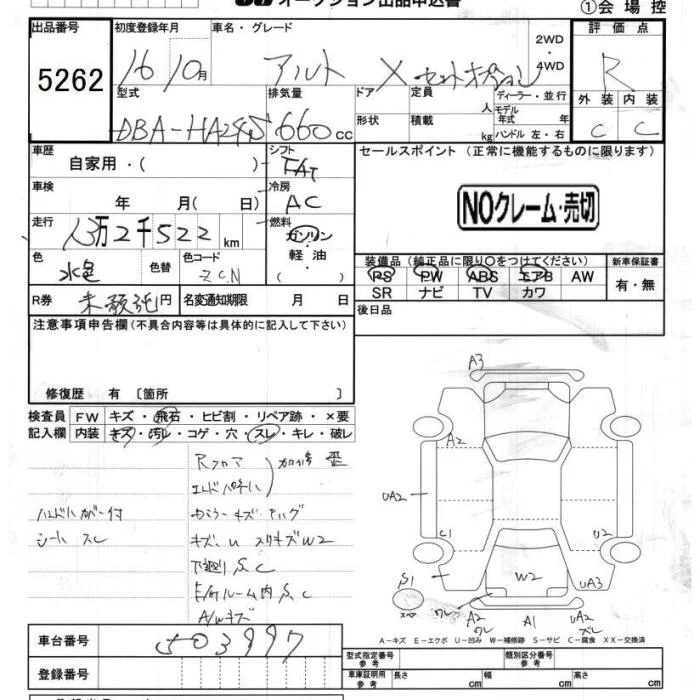 オークション出品申込書
①会場控
出品番号 初度登録年月 車名・グレード 評価点
5262 16 10月 アルト X セットオプション 2WD・4WD R
型式 排気量 ドア 定員 人 ディーラー・並行 外装 内装
DBA-HA24S 660cc 形状 積載 kg モデル年式 年 ハンドル 左・右 C C
車歴 自家用・( ) シフト FAT セールスポイント (正常に機能するものに限ります)
車検 年 月( 日) 冷房 AC
NOクレーム・売切
走行 13万2千522km 燃料 ガソリン・軽油・( )
色 水色 色替 色コード ZCN
装備品(純正品に限り〇をつけてください) 新車保証書
PS PW ABS エアB AW 有・無
SR ナビ TV カワ
R券 未預託円 名変通知期限 月 日 後日品
注意事項申告欄(不具合内容等は具体的に記入して下さい)
修復歴 有 〔箇所 〕
検査員記入欄 FW キズ・飛石・ヒビ割・リペア跡・×要
内装 キズ・汚レ・コゲ・穴・スレ・キレ・破レ
Rフロア
エンドパネル
加修歴
ハンドルカバー付
シートスレ
キズ、U スリキズW2
下廻りS、C
E/Gルーム内S、C
A/Wキズ
A3
A2
UA2
C1
U2
S1
W2
UA3
スペア
ワレ
A2
ワレ
A1
UA2
ズレ
A-キズ E-エクボ U-凹み W-補修跡 S-サビ C-腐食 XX-交換済
車台番号 503997
型式指定番号 参考 類別区分番号 参考
登録番号 車庫証明用 参考 長さ cm 幅 cm 高さ cm